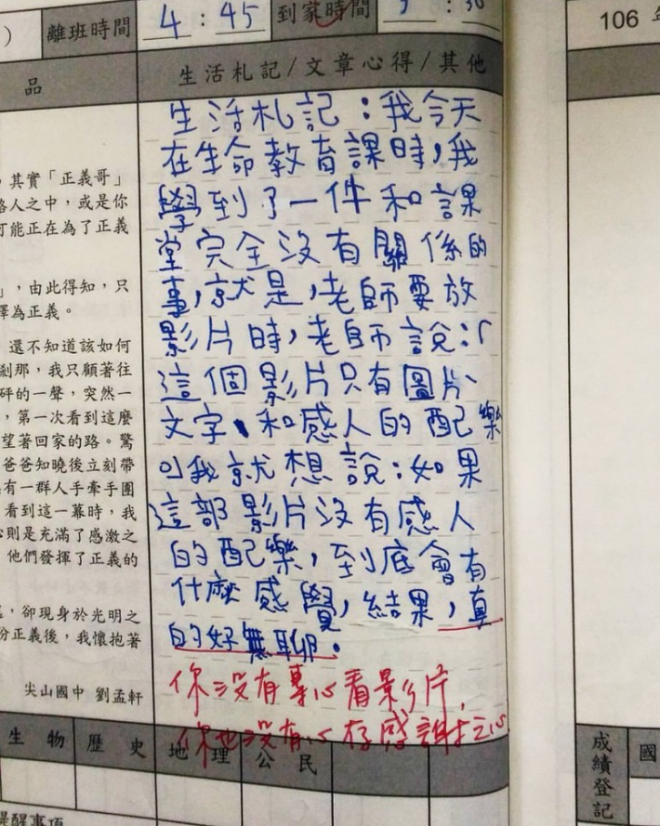 離班時間
4:45
到家時間
106
品
生活札記/文章心得/其他
其實「正義哥」
路人之中,或是你
可能正在為了正義
」,由此得知,只
擇為正義。
還不知道該如何
剎那,我只顧著往
砰的一聲,突然一
,第一次看到這麼
望著回家的路。驚
爸爸知曉後立刻帶
有一群人手牽手圍
看到這一幕時,我
心則是充滿了感激之
他們發揮了正義的
,卻現身於光明之
份正義後,我懷抱著
尖山國中 劉孟軒
生活札記:我今天
在生命教育課時,我
學到了一件和課
堂完全沒有關係的
事,就是,老師要放
影片時,老師說:「
這個影片只有圖片、
文字、和感人的配樂
」我就想說:如果
這部影片沒有感人
的配樂,到底會有
什麼感覺,結果,真
的好無聊。
你沒有專心看影片,
你也沒有心存感謝之心
生物 歷史 地理 公民
提醒事項
成績登記
國